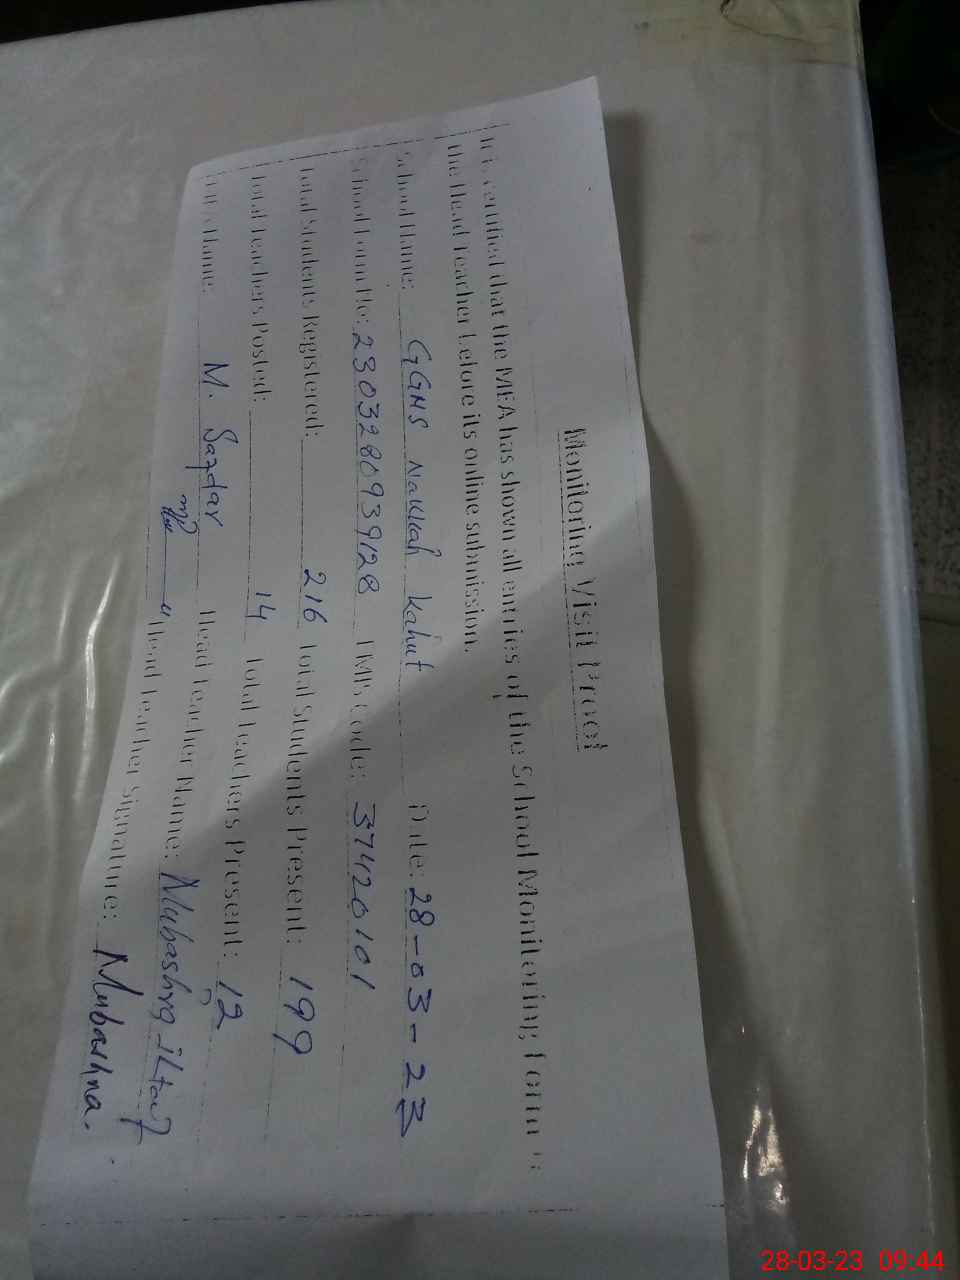 Monitoring Visit Proof
It is certified that the MEA has shown all entries of the School Monitoring Form to
the Head Teacher before its online submission.
School Name: GGHS Nakkah Kahut Date: 28-03-23
School Form No: 2303280939128 EMIS Code: 37420101
Total Students Registered: 216 Total Students Present: 199
Total Teachers Posted: 14 Total Teachers Present: 12
MEA's Name: M. Safdar Head Teacher Name: Mubashra
Head Teacher Signature: Mubashra.
28-03-23 09:44